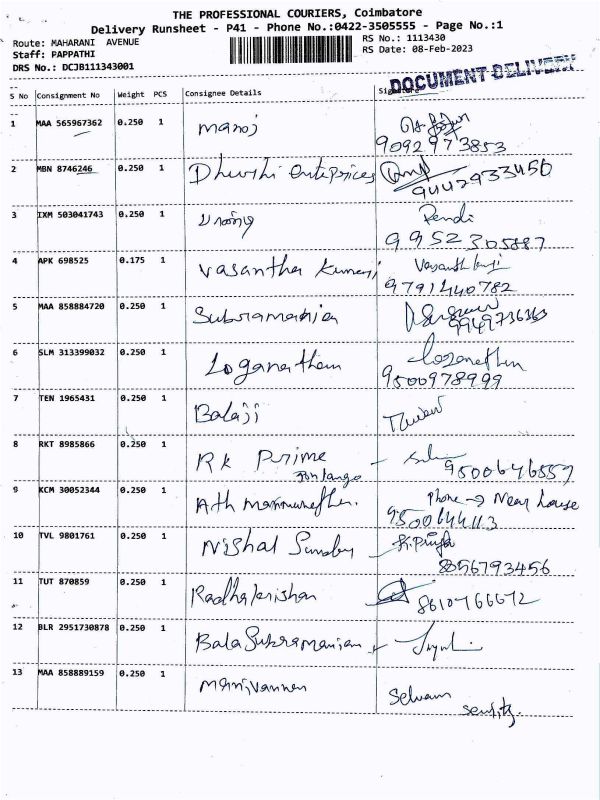 THE PROFESSIONAL COURIERS, Coimbatore
Delivery Runsheet - P41 - Phone No.:0422-3505555 - Page No.:1
Route: MAHARANI AVENUE RS No.: 1113430
Staff: PAPPATHI RS Date: 08-Feb-2023
DRS No.: DCJB111343001
DOCUMENT DELIVERY
S No Consignment No Weight PCS Consignee Details Signature
1 MAA 565967362 0.250 1 manoj
9092973853
2 MBN 8746246 0.250 1 Dhurshi enterprices
9442933450
3 IXM 503041743 0.250 1 Pandi
9952305887
4 APK 698525 0.175 1 Vasantha Kumari
9791440782
5 MAA 858884720 0.250 1 Subramanian
6 SLM 313399032 0.250 1 Loganathan Loganathan
9500978999
7 TEN 1965431 0.250 1 Balaji
8 RKT 8985866 0.250 1 RK Prime
9500646557
9 KCM 30052344 0.250 1 Phone → Near house
9500644113
10 TVL 9801761 0.250 1 Nishal K. Priya
8056793456
11 TUT 870859 0.250 1 Radhakrishan
8610766672
12 BLR 2951730878 0.250 1 BalaSubramanian
13 MAA 858889159 0.250 1 Manivannan Selvam